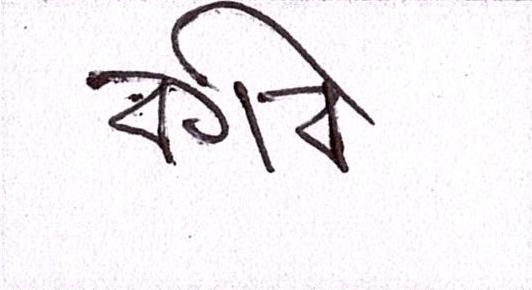 কবি